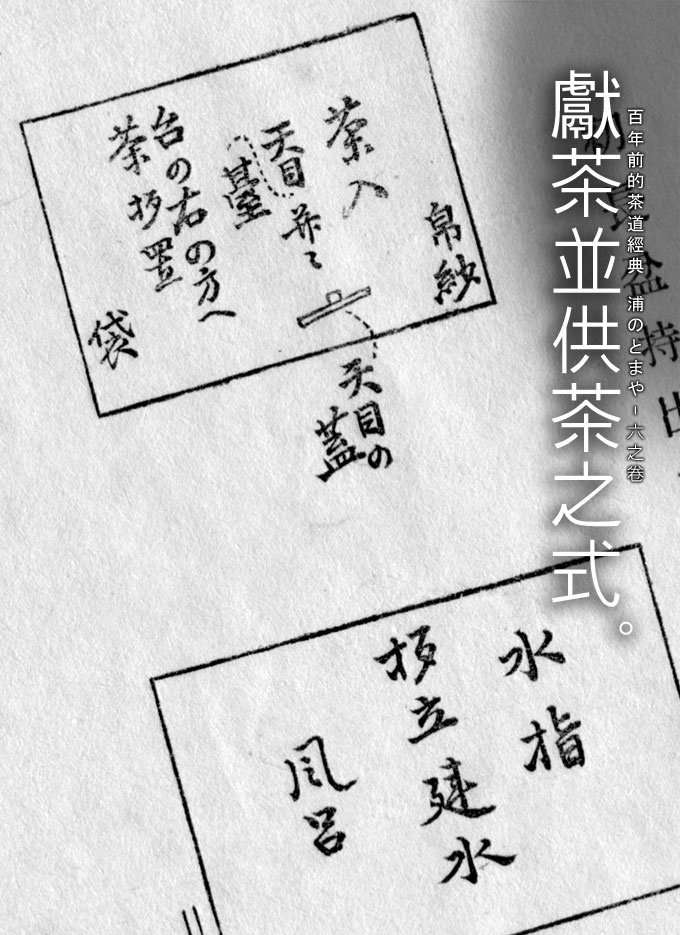 獻茶並供茶之式。
百年前的茶道經典 浦のとまや-六之卷
初
盆持出
帛紗
茶入
天目
臺
台の右の方へ
茶杓置
袋
天目の
蓋
水指
杓立建水
風呂